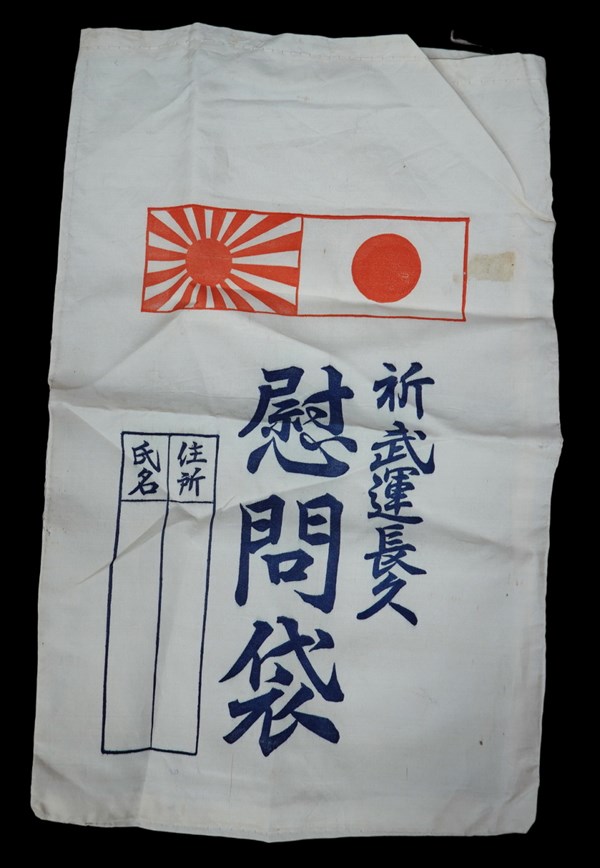 祈武運長久
慰問袋
住所
氏名